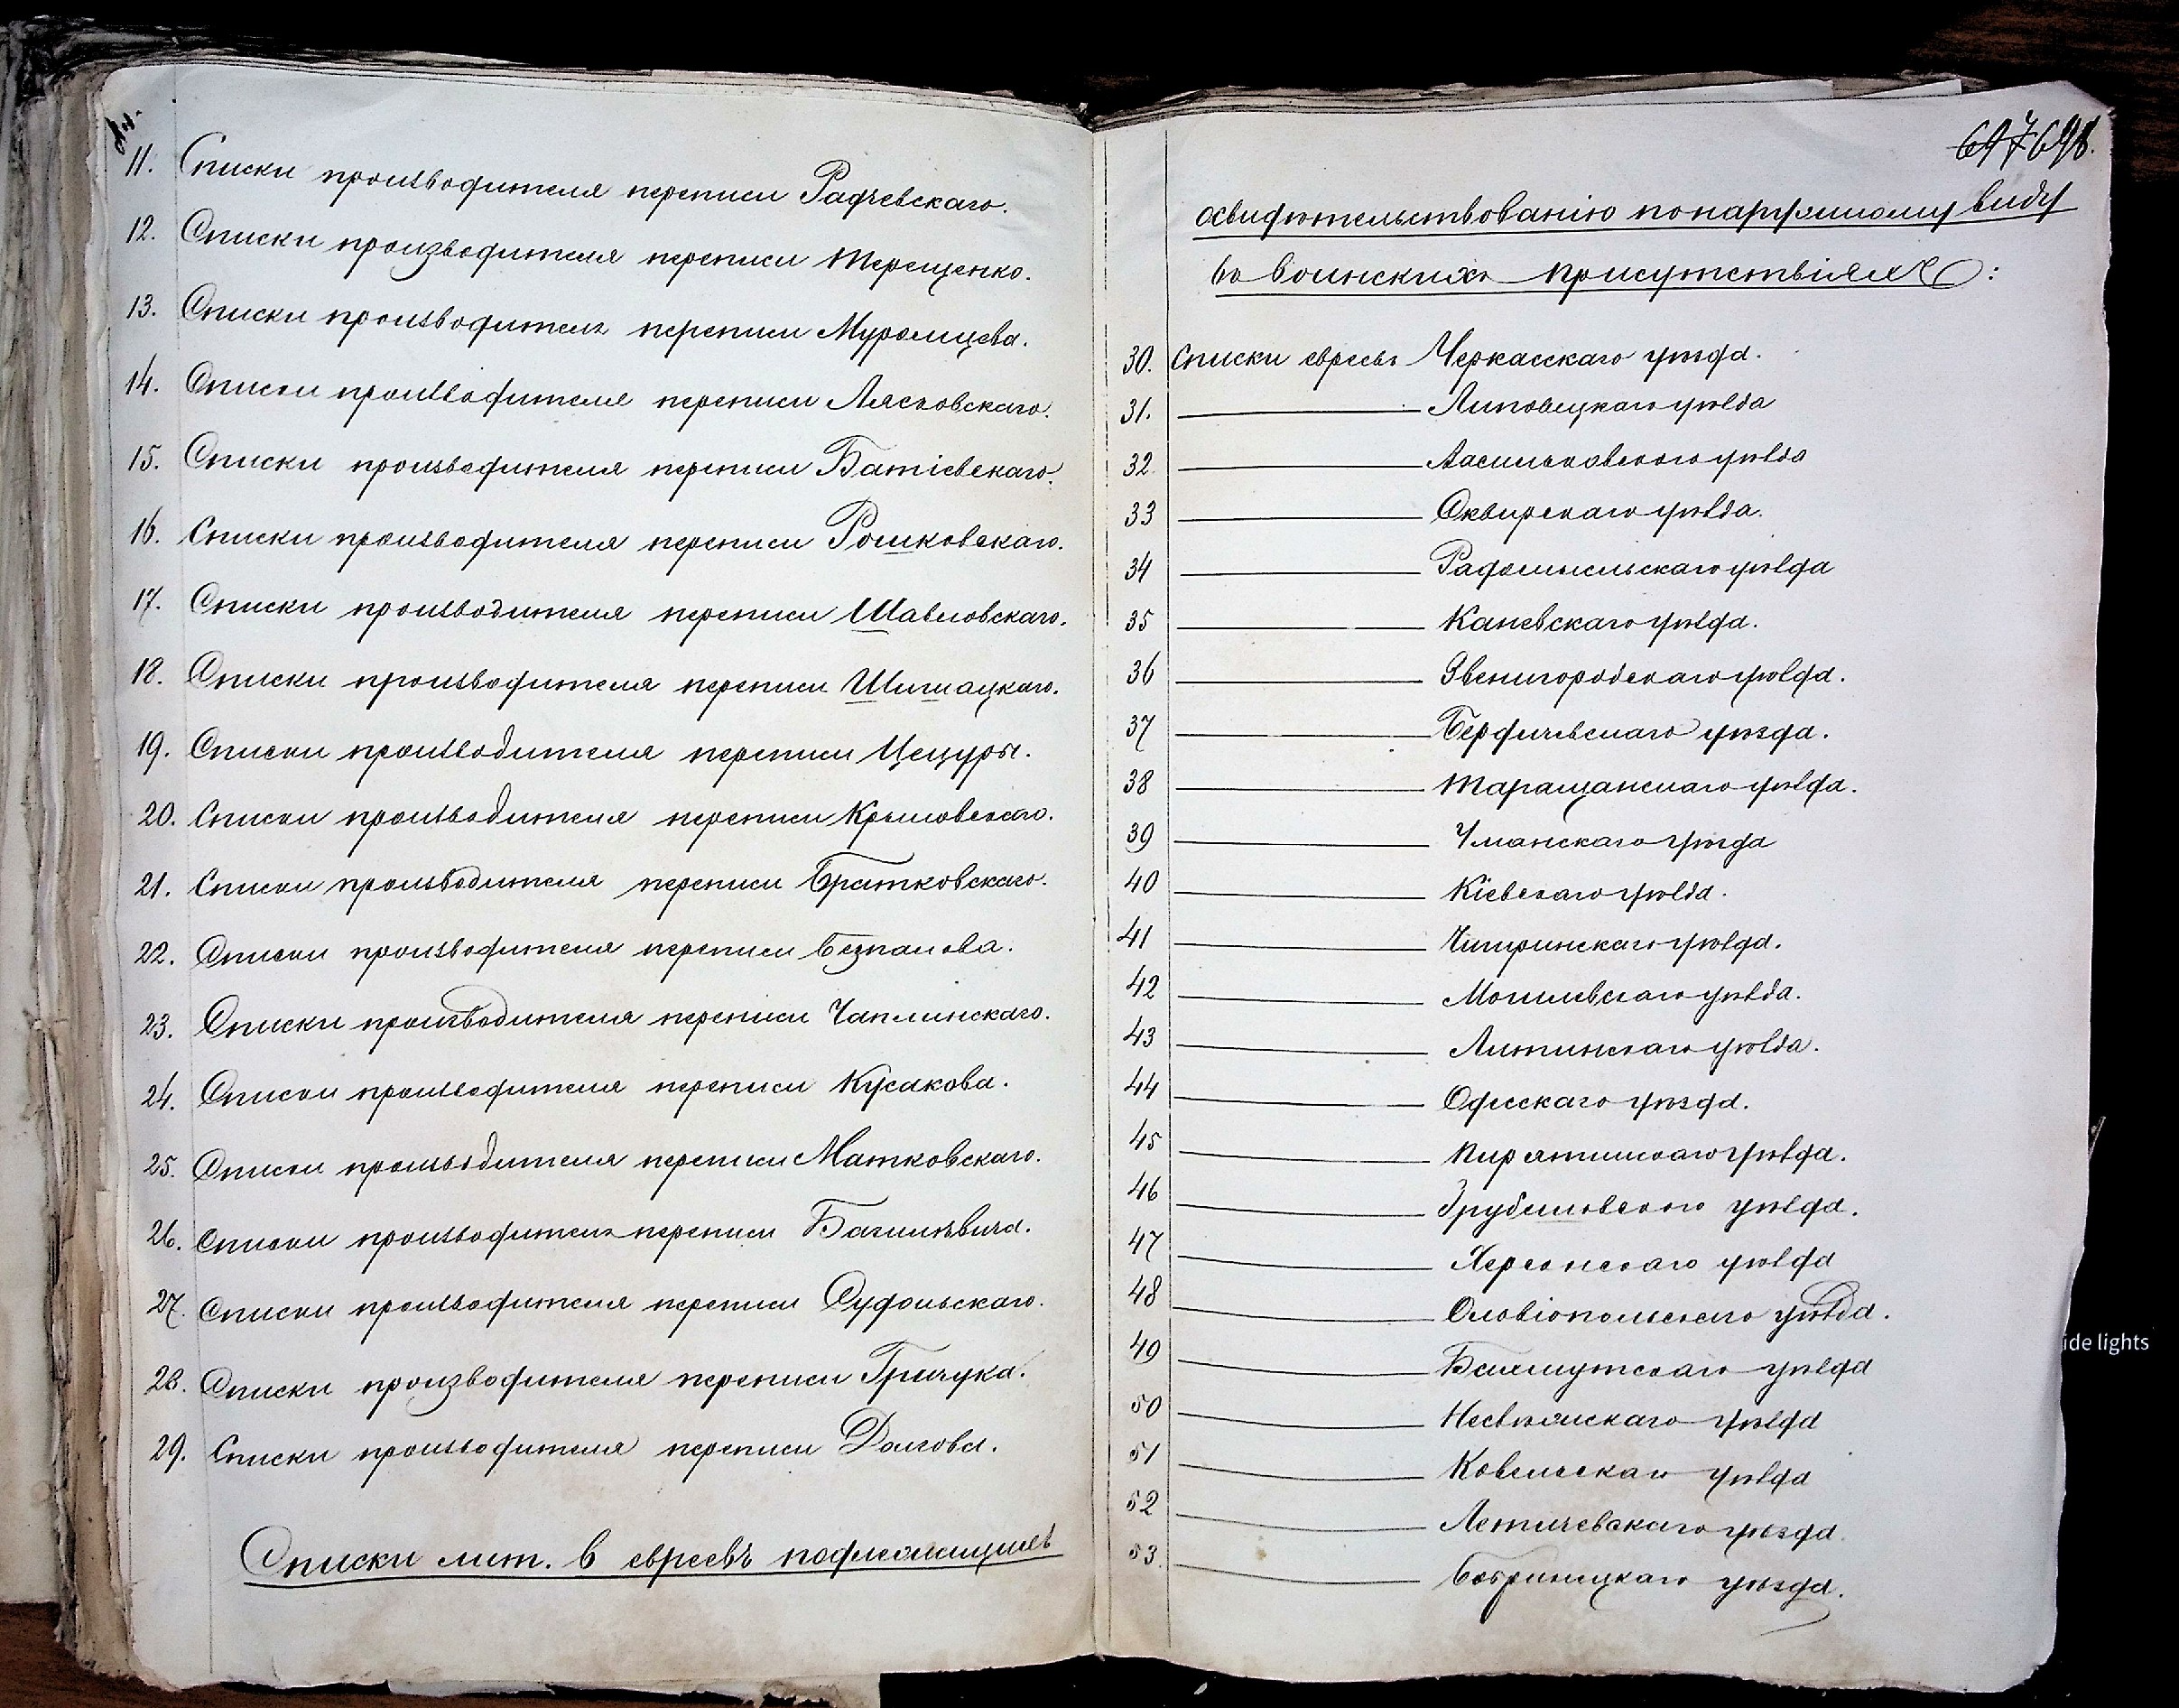 11. Списки производителя переписи Радчевскаго.
12. Списки производителя переписи Терещенко.
13. Списки производителя переписи Муромцева.
14. Списки производителя переписи Лясковскаго.
15. Списки производителя переписи Батіевскаго.
16. Списки производителя переписи Рошковскаго.
17. Списки производителя переписи Шавловскаго.
18. Списки производителя переписи Шишацкаго.
19. Списки производителя переписи Цецуры.
20. Списки производителя переписи Крыловскаго.
21. Списки производителя переписи Братковскаго.
22. Списки производителя переписи Безпалова.
23. Списки производителя переписи Чаплинскаго.
24. Списки производителя переписи Кусакова.
25. Списки производителя переписи Матковскаго.
26. Списки производителя переписи
27. Списки производителя переписи Судольскаго.
28. Списки производителя переписи Гричука.
29. Списки производителя переписи Долгова.
Списки лит. В евреевъ подлежащихъ
697 698.
освидѣтельствованію по наружному виду
въ воинскихъ присутствіяхъ:
30. Списки евреевъ Черкасскаго уѣзда.
31. Липовецкаго уѣзда
32. Васильковскаго уѣзда
33 Сквирскаго уѣзда.
34 Радомысльскаго уѣзда
35 Каневскаго уѣзда.
36 Звенигородскаго уѣзда.
37 Бердичевскаго уѣзда.
38 Таращанскаго уѣзда.
39 Уманскаго уѣзда
40 Кіевскаго уѣзда.
41 Чигиринскаго уѣзда.
42 Могилевскаго уѣзда.
43 Литинскаго уѣзда.
44 Одесскаго уѣзда.
45 Пирятинскаго уѣзда.
46 Грубешовскаго уѣзда.
47 Херсонскаго уѣзда
48 Ольвіопольскаго уѣзда.
49 Бахмутскаго уѣзда
50 уѣзда
51 Ковельскаго уѣзда
52 Летичевскаго уѣзда
53. Бобринецкаго уѣзда.
ide lights